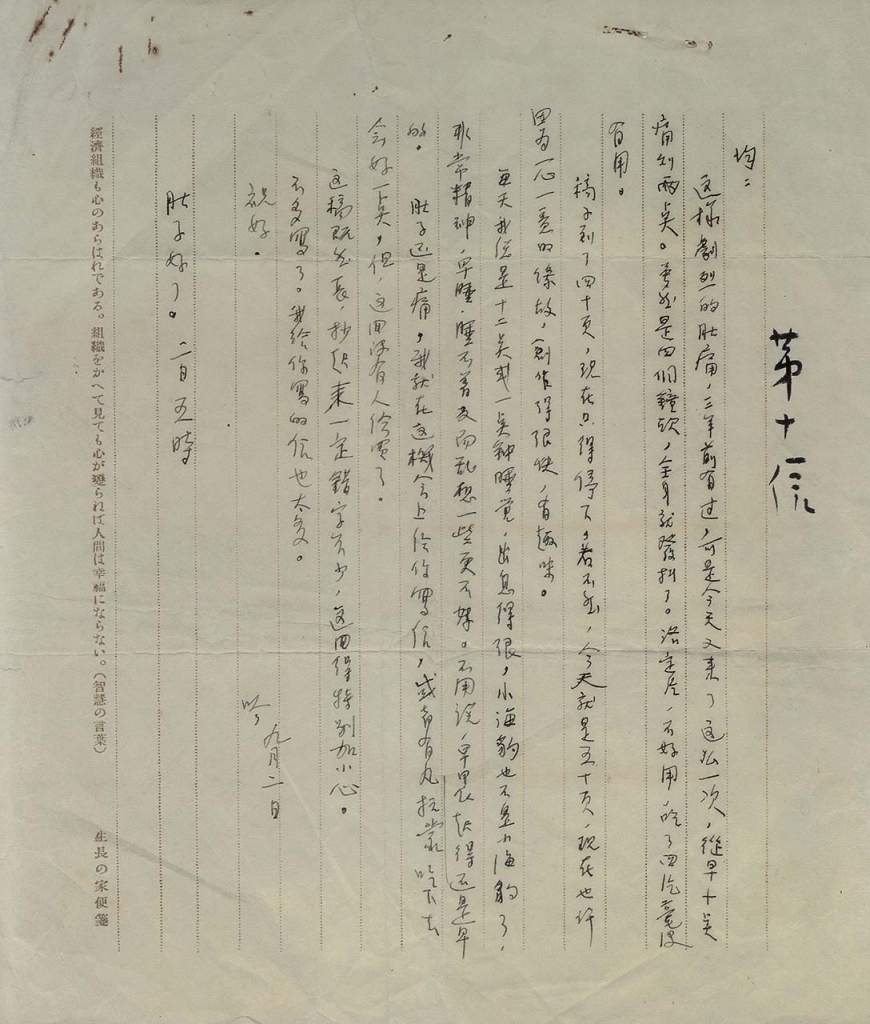 第十一信
均:
这様劇烈的肚痛,三年前有过,可是今天又来了这么一次,從早十点
痛到兩点。雖然是四個鐘頭,全身就發抖了。洛定片,不好用,吃了四片毫没
有用。
稿子到了四十頁,现在只得停下,若不然,今天就是五十頁,现在也许
因为一心一意的缘故,創作得很快,有趣味。
每天我总是十二点或一点钟睡觉,出息得很,小海豹也不是小海豹了,
非常精神,早睡,睡不着反而乱想一些更不好。不用说,早晨起得还是早
的。 肚子还是痛,我就在这機会上给你寫信,或者有凡拉蒙吃下去
会好一点,但,这回没有人给買了。
这稿既然長,抄起来一定錯字不少,这回得特别加小心。
不多寫了。我给你寫的信也太多。
祝好。
吟 九月二日
肚子好了。 二日五時
經濟組織も心のあらはれである。組織をかへて見ても心が變られば人間は幸福にならない。(智慧の言葉) 生長の家便箋